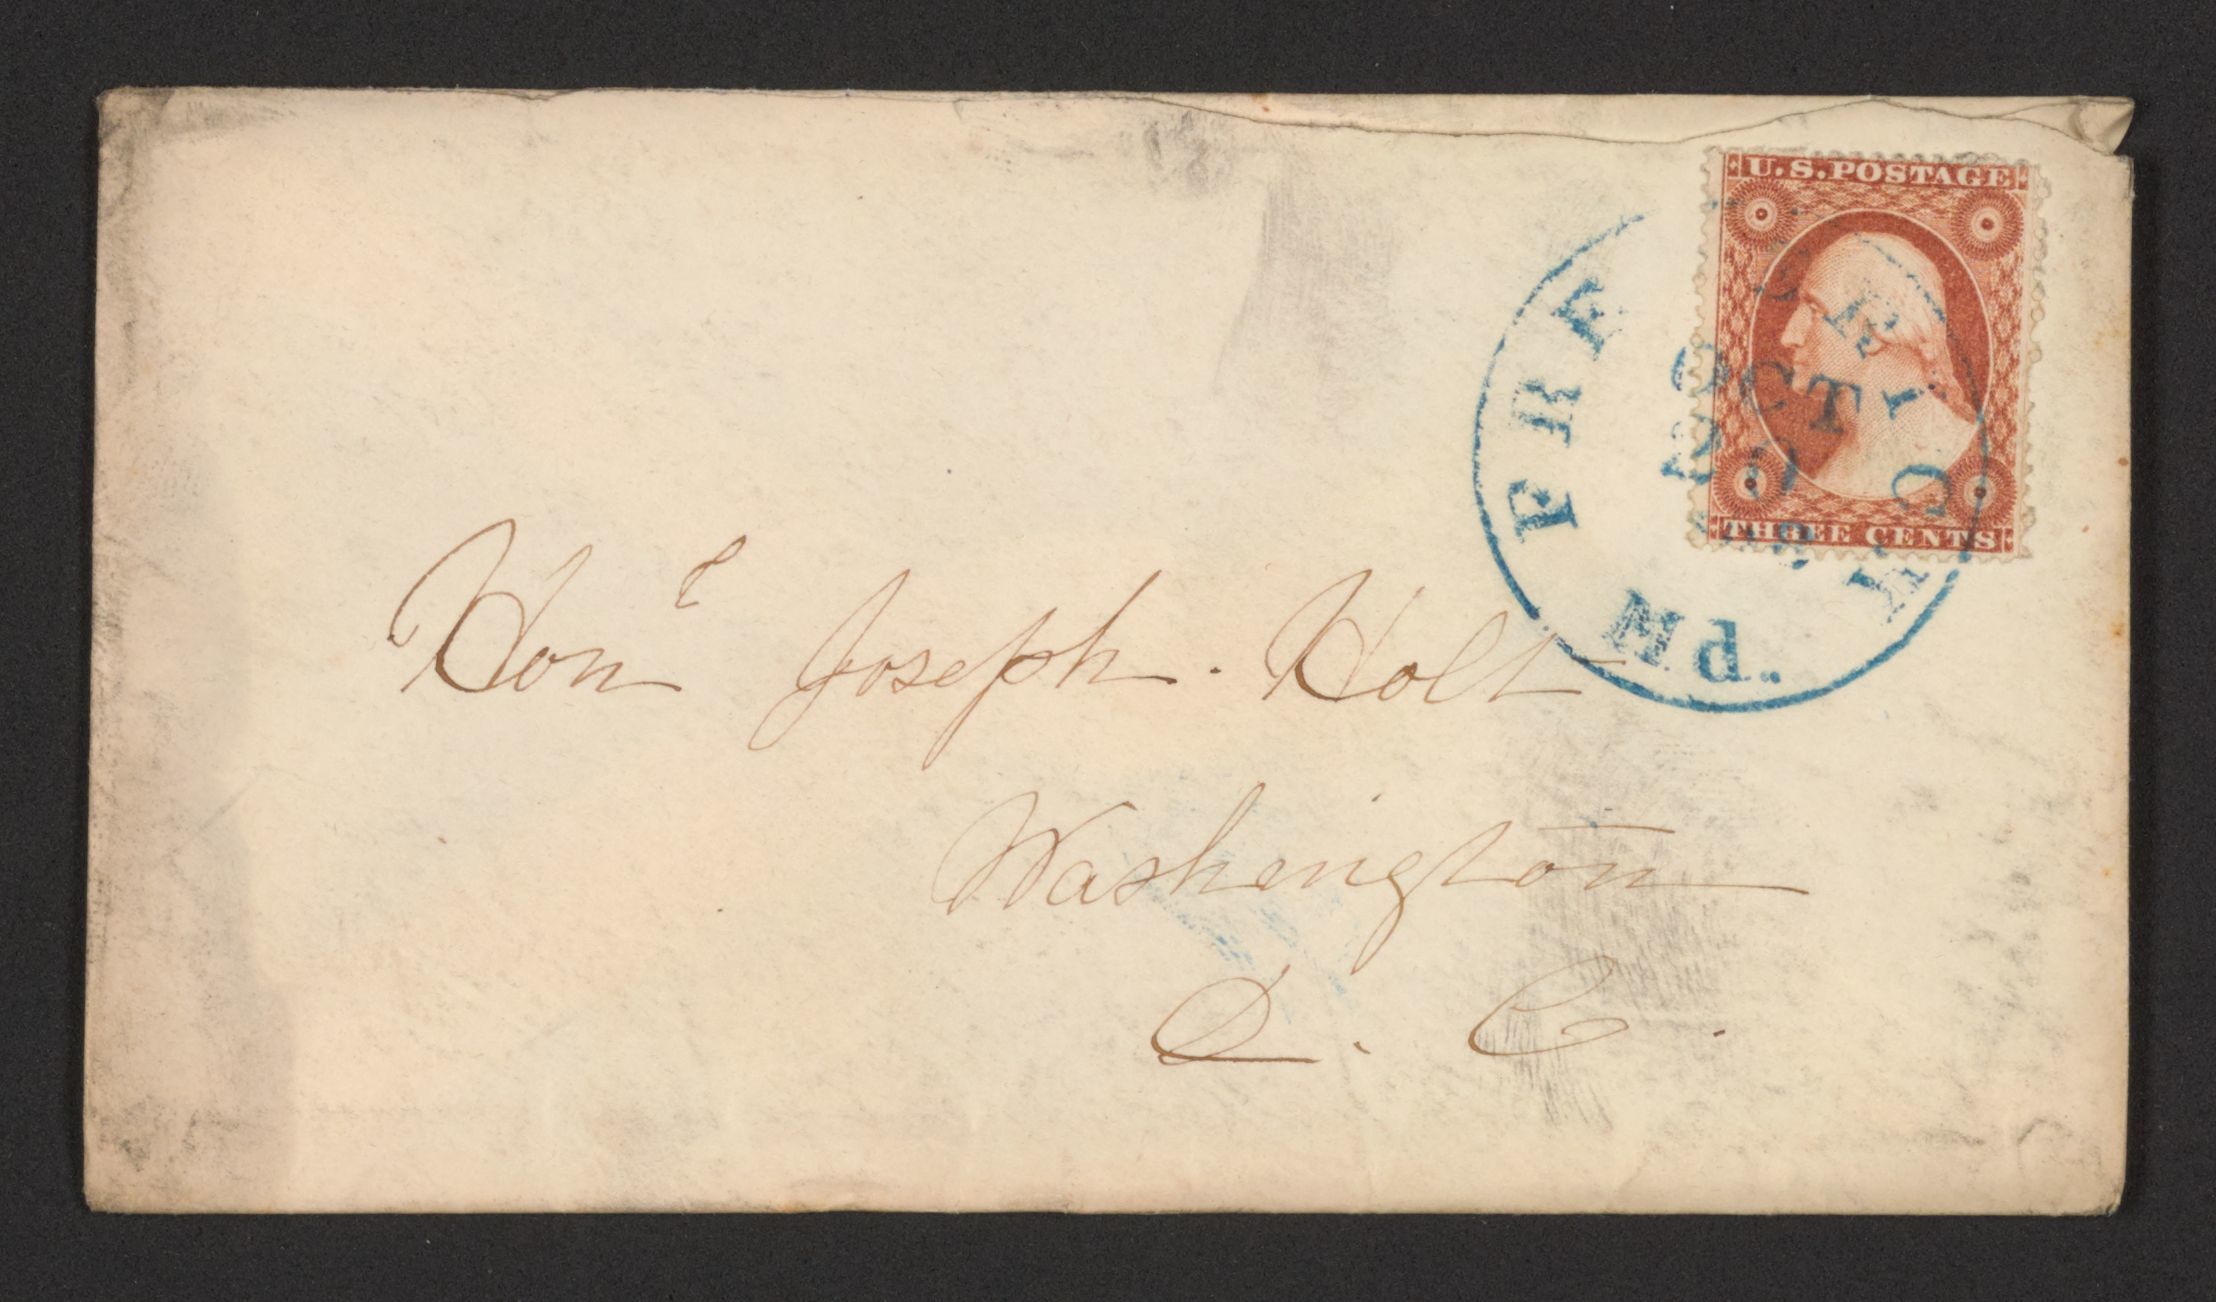 U.S.POSTAGE
THREE CENTS
FREDERICK
OCT
20
Md.
Honᵉ Joseph. Holt
Washington
D. C.